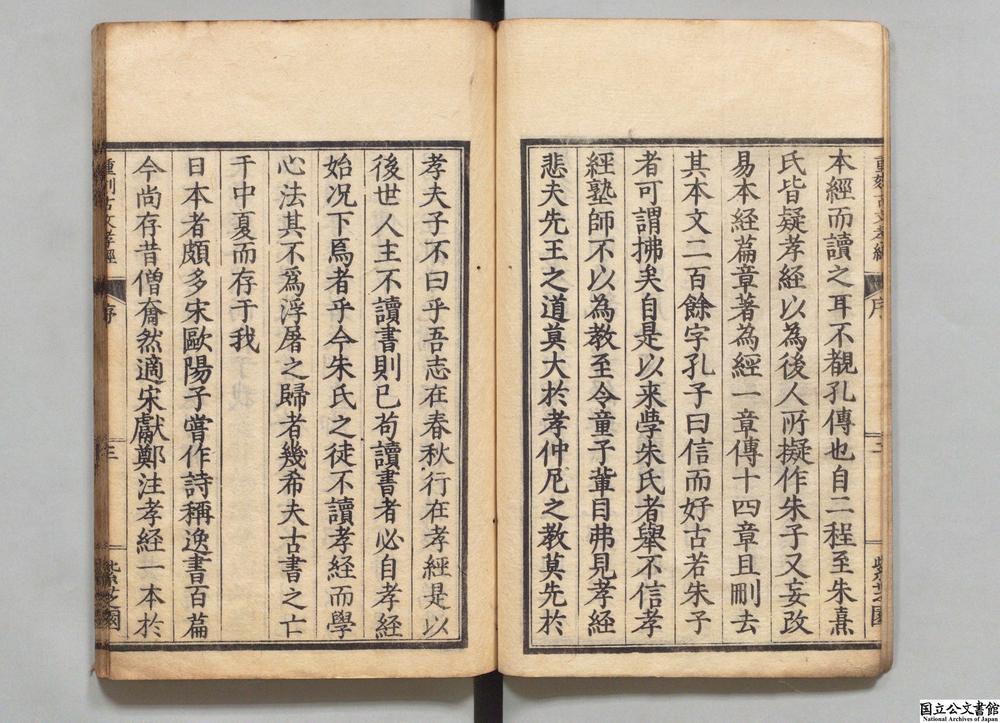 本經而讀之耳不覩孔傳也自二程至朱熹
氏皆疑孝經以為後人所擬作朱子又妄改
易本經篇章著為經一章傳十四章且刪去
其本文二百餘字孔子曰信而好古若朱子
者可謂拂矣自是以来學朱氏者舉不信孝
經塾師不以為教至令童子輩目弗見孝經
悲夫先王之道莫大於孝仲尼之教莫先於
重刻古文孝經
序
三
紫芝園
孝夫子不曰乎吾志在春秋行在孝經是以
後世人主不讀書則已苟讀書者必自孝經
始況下焉者乎今朱氏之徒不讀孝經而學
心法其不爲浮屠之歸者幾希夫古書之亡
于中夏而存于我
日本者頗多宋歐陽子嘗作詩稱逸書百篇
今尚存昔僧奝然適宋獻鄭注孝経一本於
重刻古文孝經
序
三
紫芝園
国立公文書館
National Archives of Japan